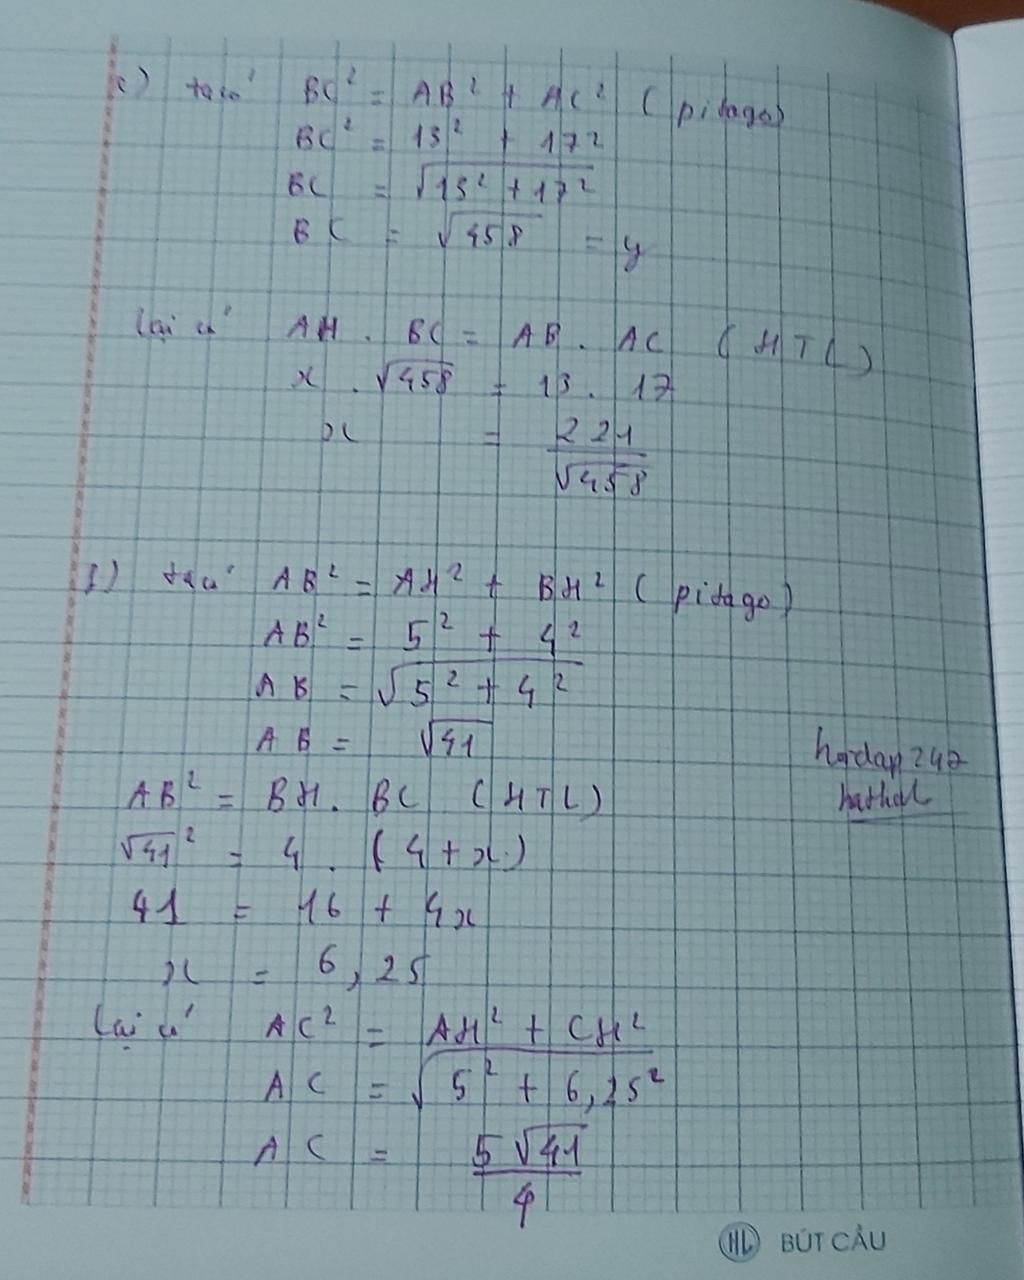 c) ta có BC² = AB² + AC² (pitago)
BC² = 13² + 17²
BC = √13² + 17²
BC = √458 = y
lại có AH . BC = AB . AC (HTL)
x . √458 = 13 . 17
x = 221/√458
f) ta có AB² = AH² + BH² (pitago)
AB² = 5² + 4²
AB = √5² + 4²
AB = √41
hoidap247
AB² = BH . BC (HTL)
√41² = 4 . (4 + x)
41 = 16 + 4x
x = 6,25
lại có AC² = AH² + CH²
AC = √5² + 6,25²
AC = 5√41/4
HL BÚT CẦU